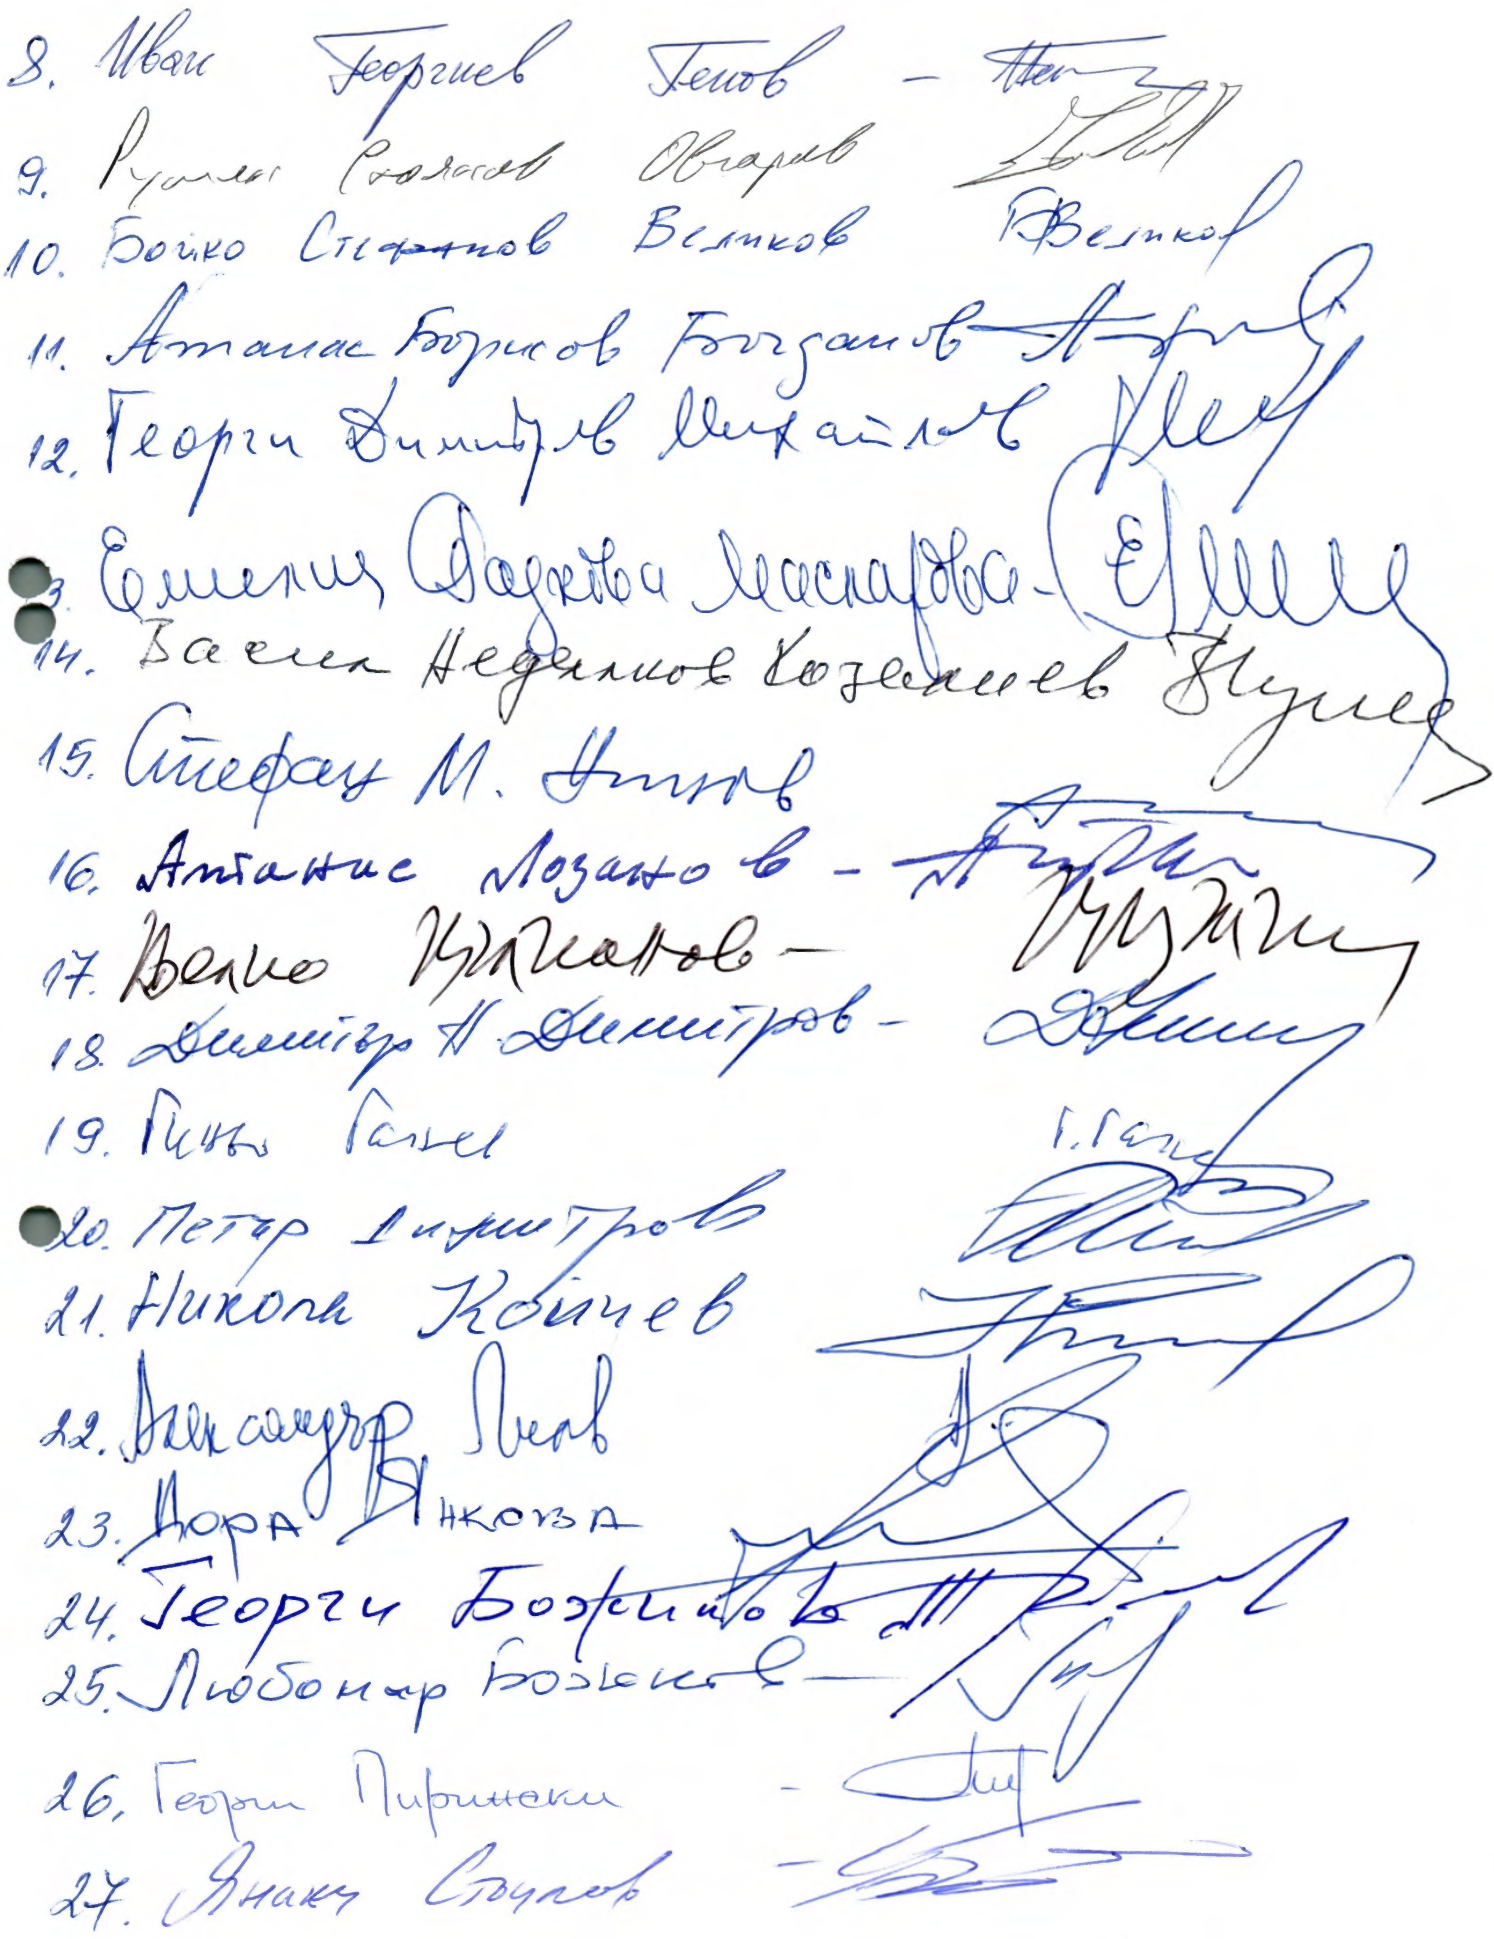 8. Иван Георгиев Генов -
9. Румен Стоянов Овчаров
10. Бойко Стефанов Великов БВеликов
11. Атанас Борисов Богданов
12. Георги Димитров Михайлов
3. Емилия Радкова Масларова -
14. Васил Неделков
15. Стефан М. Нинов
16. Атанас Лозанов -
17. Велко Вълканов -
18. Димитър Н. Димитров -
19. Гиньо Ганев Г. Ганев
20. Петър Димитров
21. Никола Койчев
22. Александър
23. Дора Янкова
24. Георги Божинов
25. Любомир Божков -
26. Георги Пирински -
27. Янаки Стоилов -